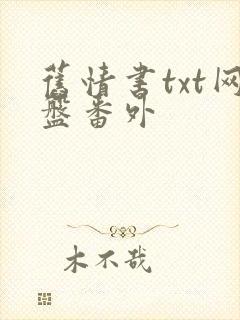 舊情书txt网
盤番外
木不哉